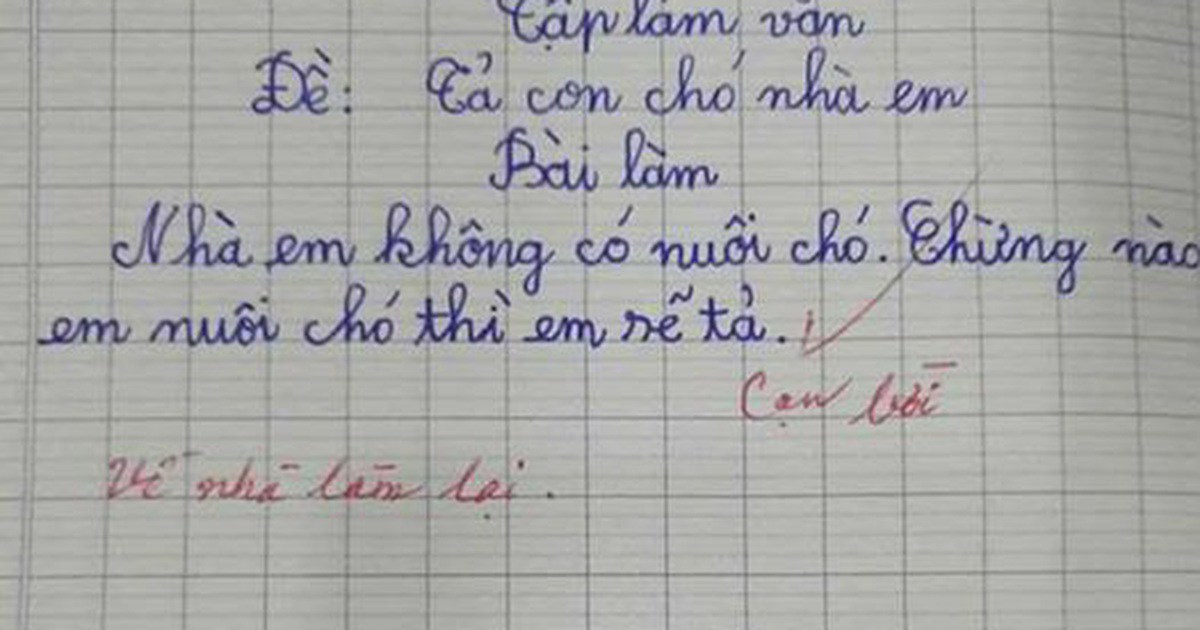 Tập làm văn
Đề: Tả con chó nhà em
Bài làm
Nhà em không có nuôi chó. Chừng nào
em nuôi chó thì em sẽ tả.
Cạn lời
Về nhà làm lại.